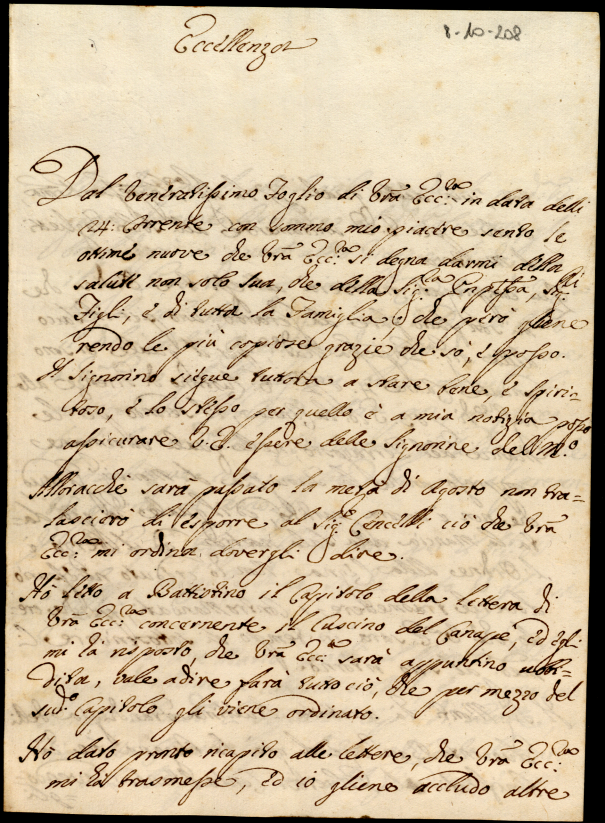 8-10-208
Eccellenza
Dal veneratissimo Foglio di Vrã Ecc:za in data delli
24: Corrente con sommo mio piacere sento le
ottime nuove che Vrã Ecc:za si degna darmi della
salute non solo sua, che della Sig:ra Cont͠ssa, Sig:ri
Figli, e di tutta la Famiglia che però gliene
rendo le più copiose grazie che sò, e posso.
Il Signorino siegue tuttora a stare bene, e Spiri=
toso, e lo stesso per quello è a mia notizia posso
assicurare V.E. essere delle Signorine del M:o
Alloracchè sarà passato la metà di Agosto non tra=
lasciorò di esporre al Sig:e Cencelli ciò che Vrã
Ecc:za mi ordina dovergli dire.
Hò letto a Battistino il Capitolo della lettera di
Vrã Ecc:za concernente il Cuscino del Canapè, ed egli
mi hà risposto, che Vrã Ecc:za sarà appuntino ubbi=
dita, vale adire farà tutto ciò, che per mezzo del
sud:o Capitolo gli viene ordinato.
Hò dato pronto ricapito alle lettere, che Vrã Ecc:za
mi hà trasmesse, ed io gliene accludo altre